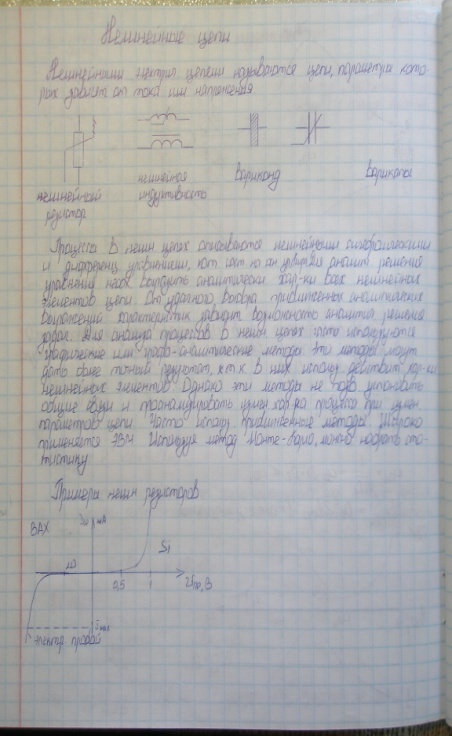 Нелинейные цепи
Нелинейными электрич цепями называются цепи, параметры кото-
рых зависят от тока или напряжения
нелинейный
резистор
нелинейная
индуктивность
Вариконд
Варикапы
Процессы в нелин цепях описываются нелинейными алгебраическими
и дифференц. уравнениями, кот
уравнения надо выбрать аналитически хар-ки всех нелинейных
элементов цепи. От удачного выбора приближенных аналитических
выражений характеристик зависит возможность аналитич. решения
задач. Для анализа процессов в нелин цепях часто используются
графические или графо-аналитические методы. Эти методы могут
дать более точный результат, к.т.к. в них использ. действит. хар-ки
нелинейных элементов Однако эти методы не позв. установить
общие связи и прогнозировать измен хар-ка процесса при измен
параметров цепи. Часто использ. приближенные методы. Широко
применяется ЭВМ Используя метод Монте-Карло, можно набрать ста-
тистику
Примеры нелин резисторов
ВАХ
мА
Si
0,5
1
Uпр, В
электр пробой